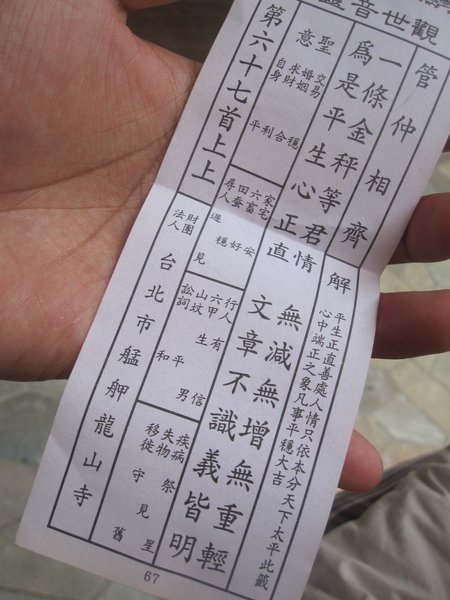 觀世音
管仲相齊
一條金秤等君情
無減無增無重輕
為是平生心正直
文章不識義皆明
解
平生正直善處人情只依本分天下太平此籤
心中端正之象凡事平穩大吉
聖意
交易 穩
婚姻 合
求財 利
自身 平
家宅 安
六畜 好
田蚕 穩
尋人 遲見
行人 有信
六甲 生男
山坟 平
訟詞 和
疾病 祭星
失物 見
移徙 守舊
第六十七首上上
財團法人台北市艋舺龍山寺
67